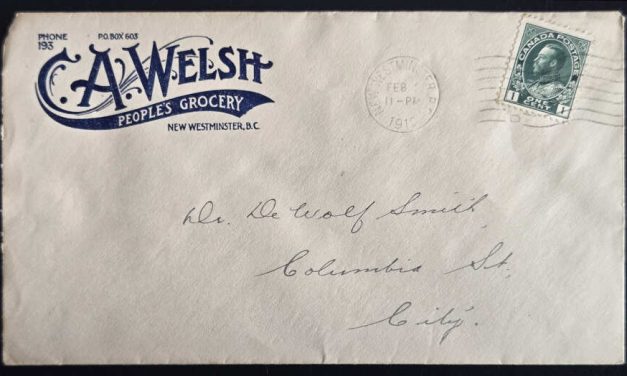 PHONE
193
P.O. BOX 603
C.A. WELSH
PEOPLE'S GROCERY
NEW WESTMINSTER, B.C.
NEW WESTMINSTER
FEB
11-PM
CANADA POSTAGE
1 ONE CENT 1
Dr. De Wolf Smith,
Columbia St.
City.